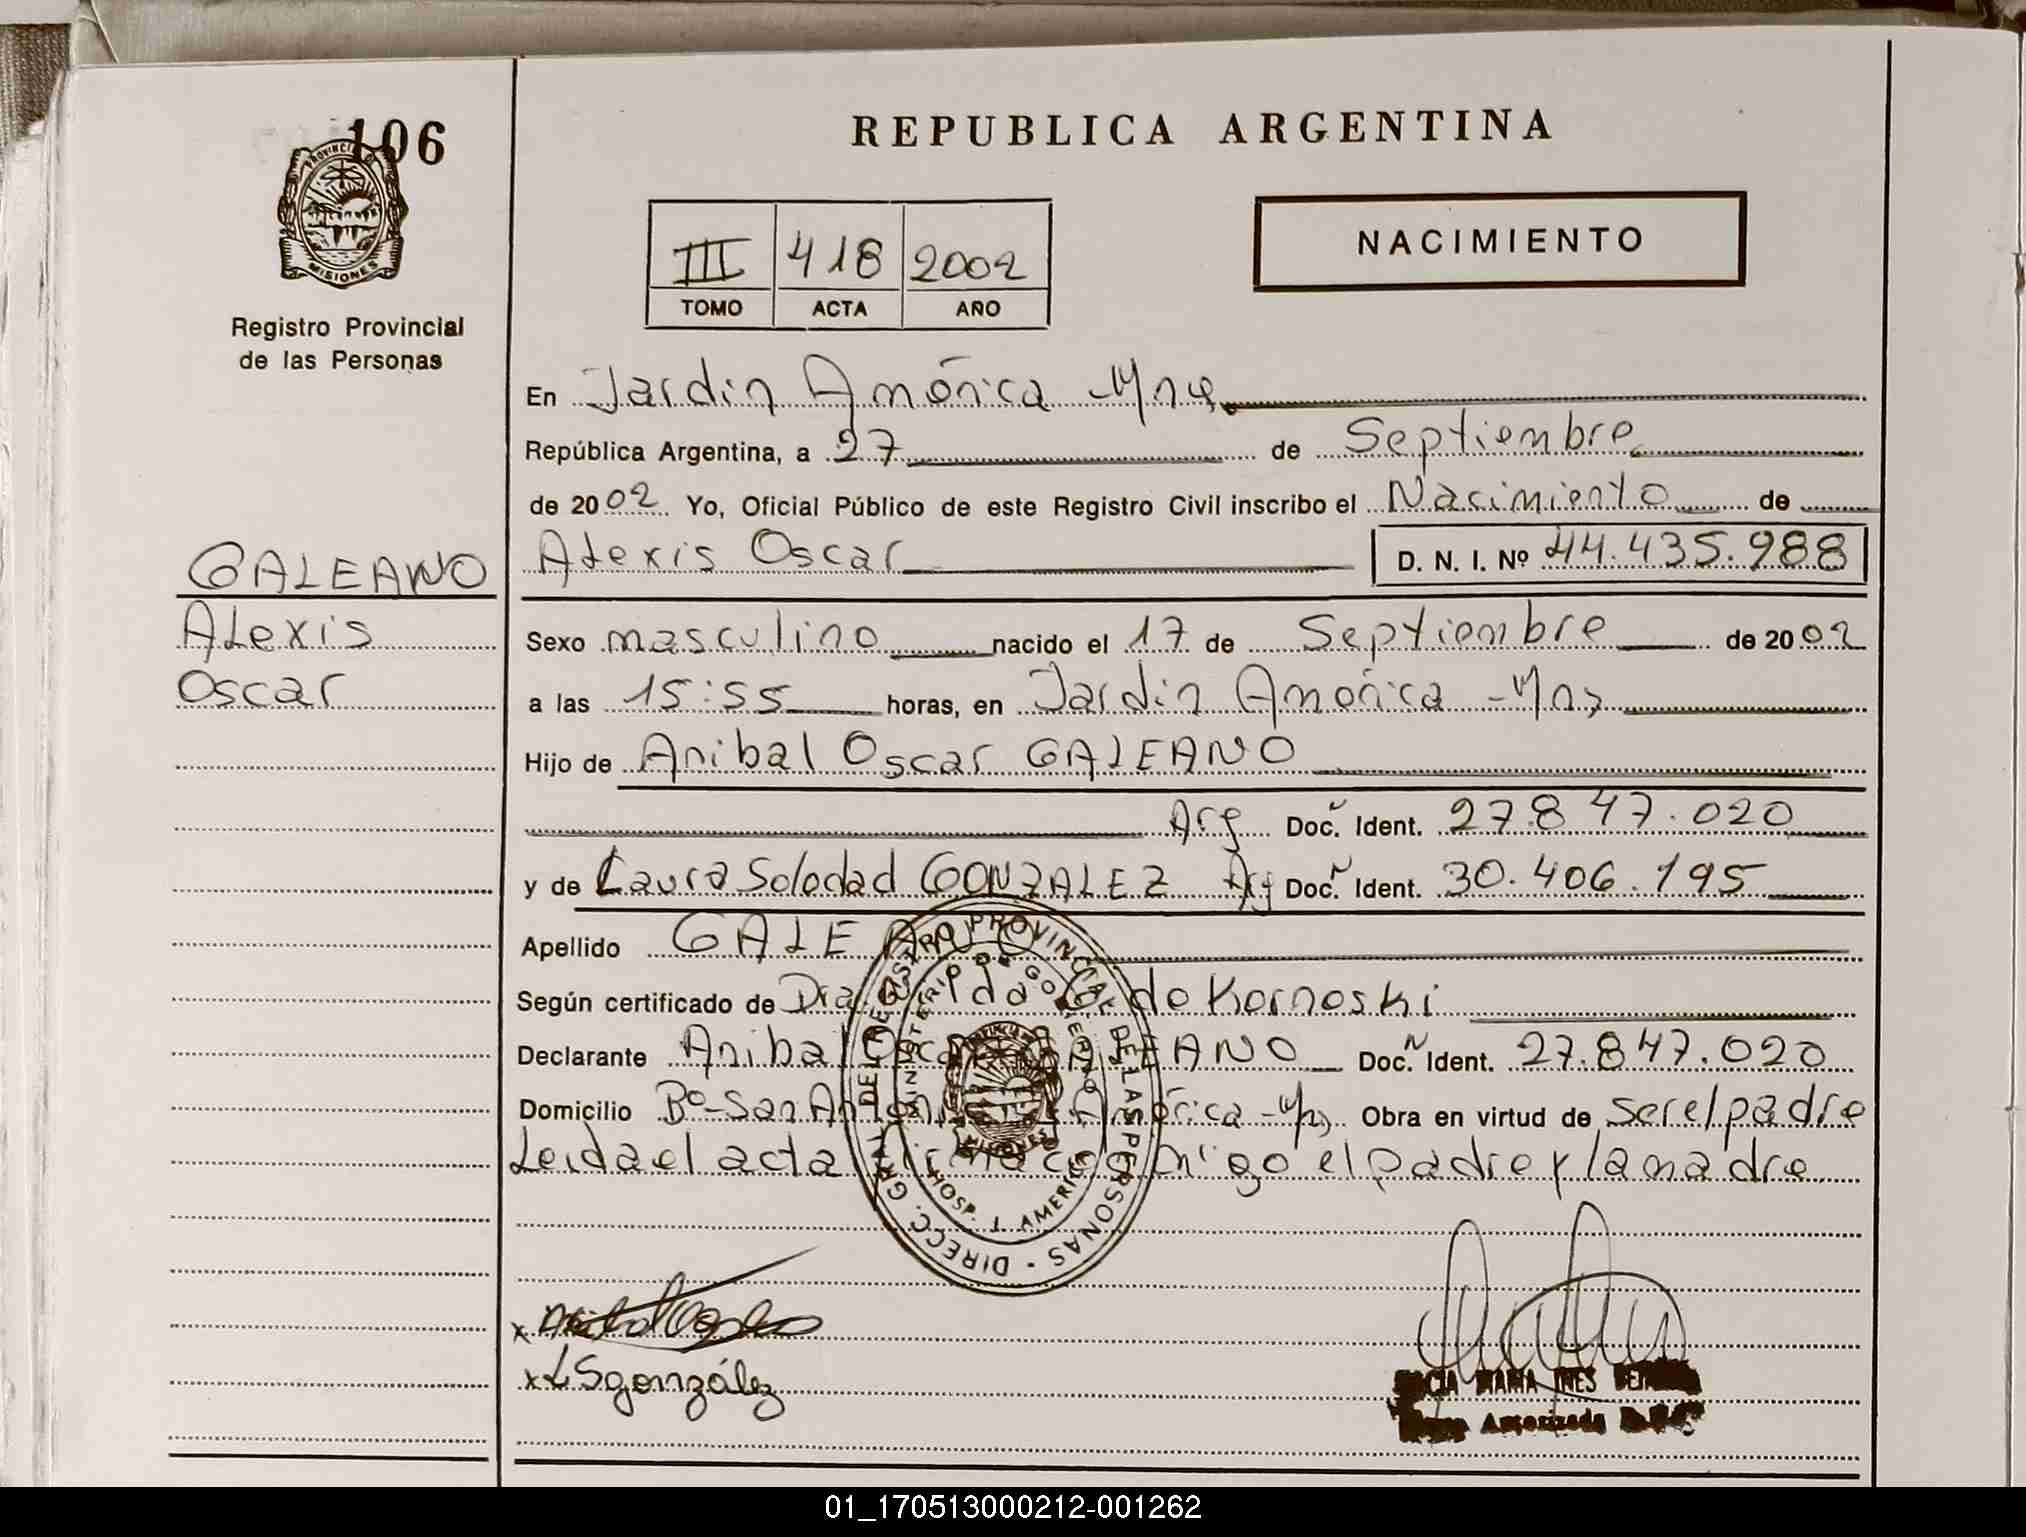 106
REPUBLICA ARGENTINA
PROVINCIA D
MISIONES
Registro Provincial
de las Personas
III 418 2002
TOMO ACTA AÑO
NACIMIENTO
En Jardin América - Mnes
República Argentina, a 27 de Septiembre
de 2002 Yo, Oficial Público de este Registro Civil inscribo el Nacimiento de
GALEANO
Alexis
Oscar
Alexis Oscar D. N. I. Nº 44.435.988
Sexo masculino nacido el 17 de Septiembre de 2002
a las 15:55 horas, en Jardin América - Mnes
Hijo de Anibal Oscar GALEANO
Arg Doc. Ident. 27.847.020
y de Laura Soledad GONZALEZ Arg Doc. Ident. 30.406.195
Apellido GALEANO
Según certificado de Dra. de Kornoski
Declarante Anibal Oscar GALEANO Doc. Ident. 27.847.020
Domicilio Bº-San Antonio América - Obra en virtud de ser el padre
Leida el acta firma conmigo el padre y la madre
DIRECC. GRAL. DEL REGISTRO PROVINCIAL DE LAS PERSONAS
MINISTERIO DE GOBIERNO
HOSP. J. AMERICA
MISIONES
x
x LSgonzález
MARIA INES
Autorizada
01_170513000212-001262